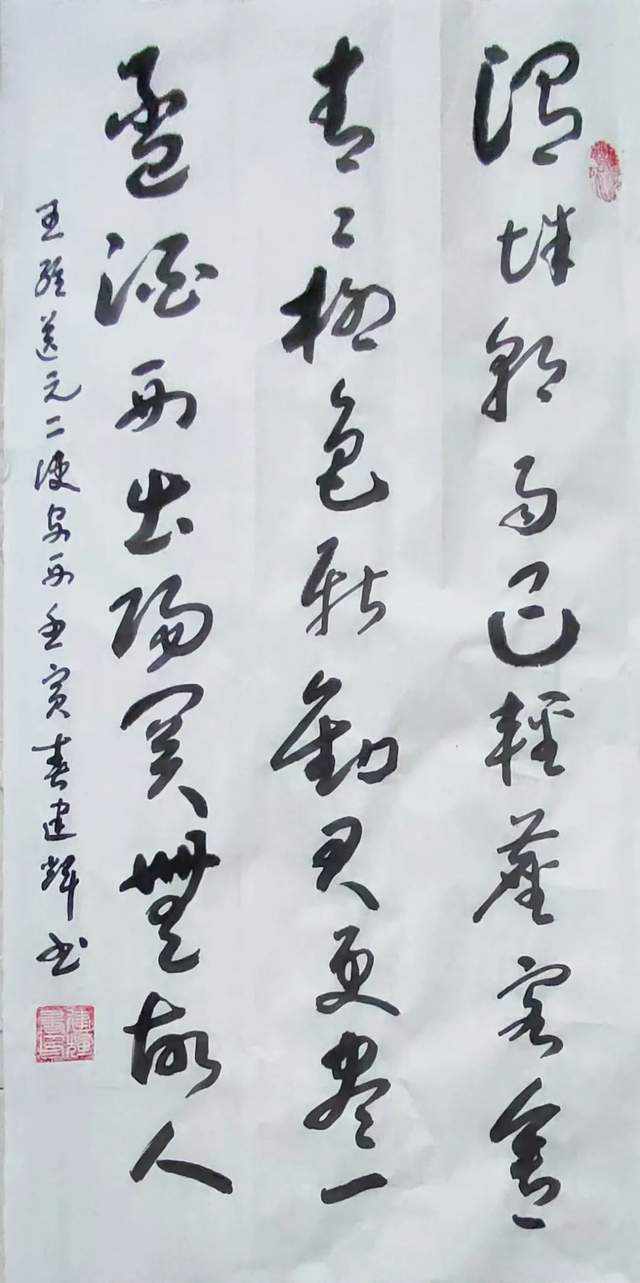 渭城朝雨浥輕塵客舍
青々柳色新勸君更盡一
盃酒西出陽關無故人
王維送元二使安西壬寅春建輝书